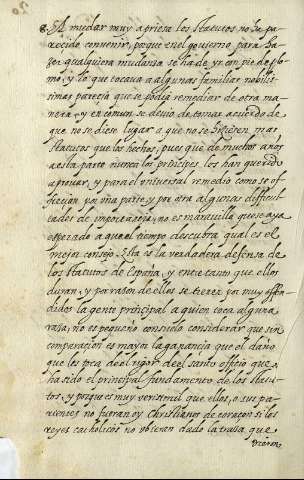 8. A mudar muy apriesa los statutos no ha pa-
recido convenir, porque en el govierno para ha-
zer qualquiera mudansa se ha de yr con pie de plo-
mo, y lo que tocava a algunas familias nobilis-
simas parecia que se podia remediar de otra ma-
nera, y en comun se devio de tomar acuerdo de
que no se diesse lugar a que no se hiziessen mas
statutos que los hechos, pues que de muchos años
a esta parte nunca los principes los han querido
aprovar, y para el universal remedio como se of-
por una parte, y por otra algunas dificul-
tades de importançia, no es maravilla que se aya
esperado a que el tiempo descubra qual es el
mejor consejo. Esta es la verdadera defensa de
los statutos de España, y en este tanto que ellos
duran, y por razon de ellos se tiene por muy offen-
didos la gente principal a quien toca alguna
raza, no es pequeño consuelo considerar que sin
comparacion es mayor la ganancia que el daño
que les toca del rigor de el santo officio que
ha sido el principal fundamento de los statu-
tos, y porque es muy verisimil que ellos, o sus pa-
rientes no fueran oy christianos de coraçon si los
reyes catholicos no obieran dado la traça que
dieron